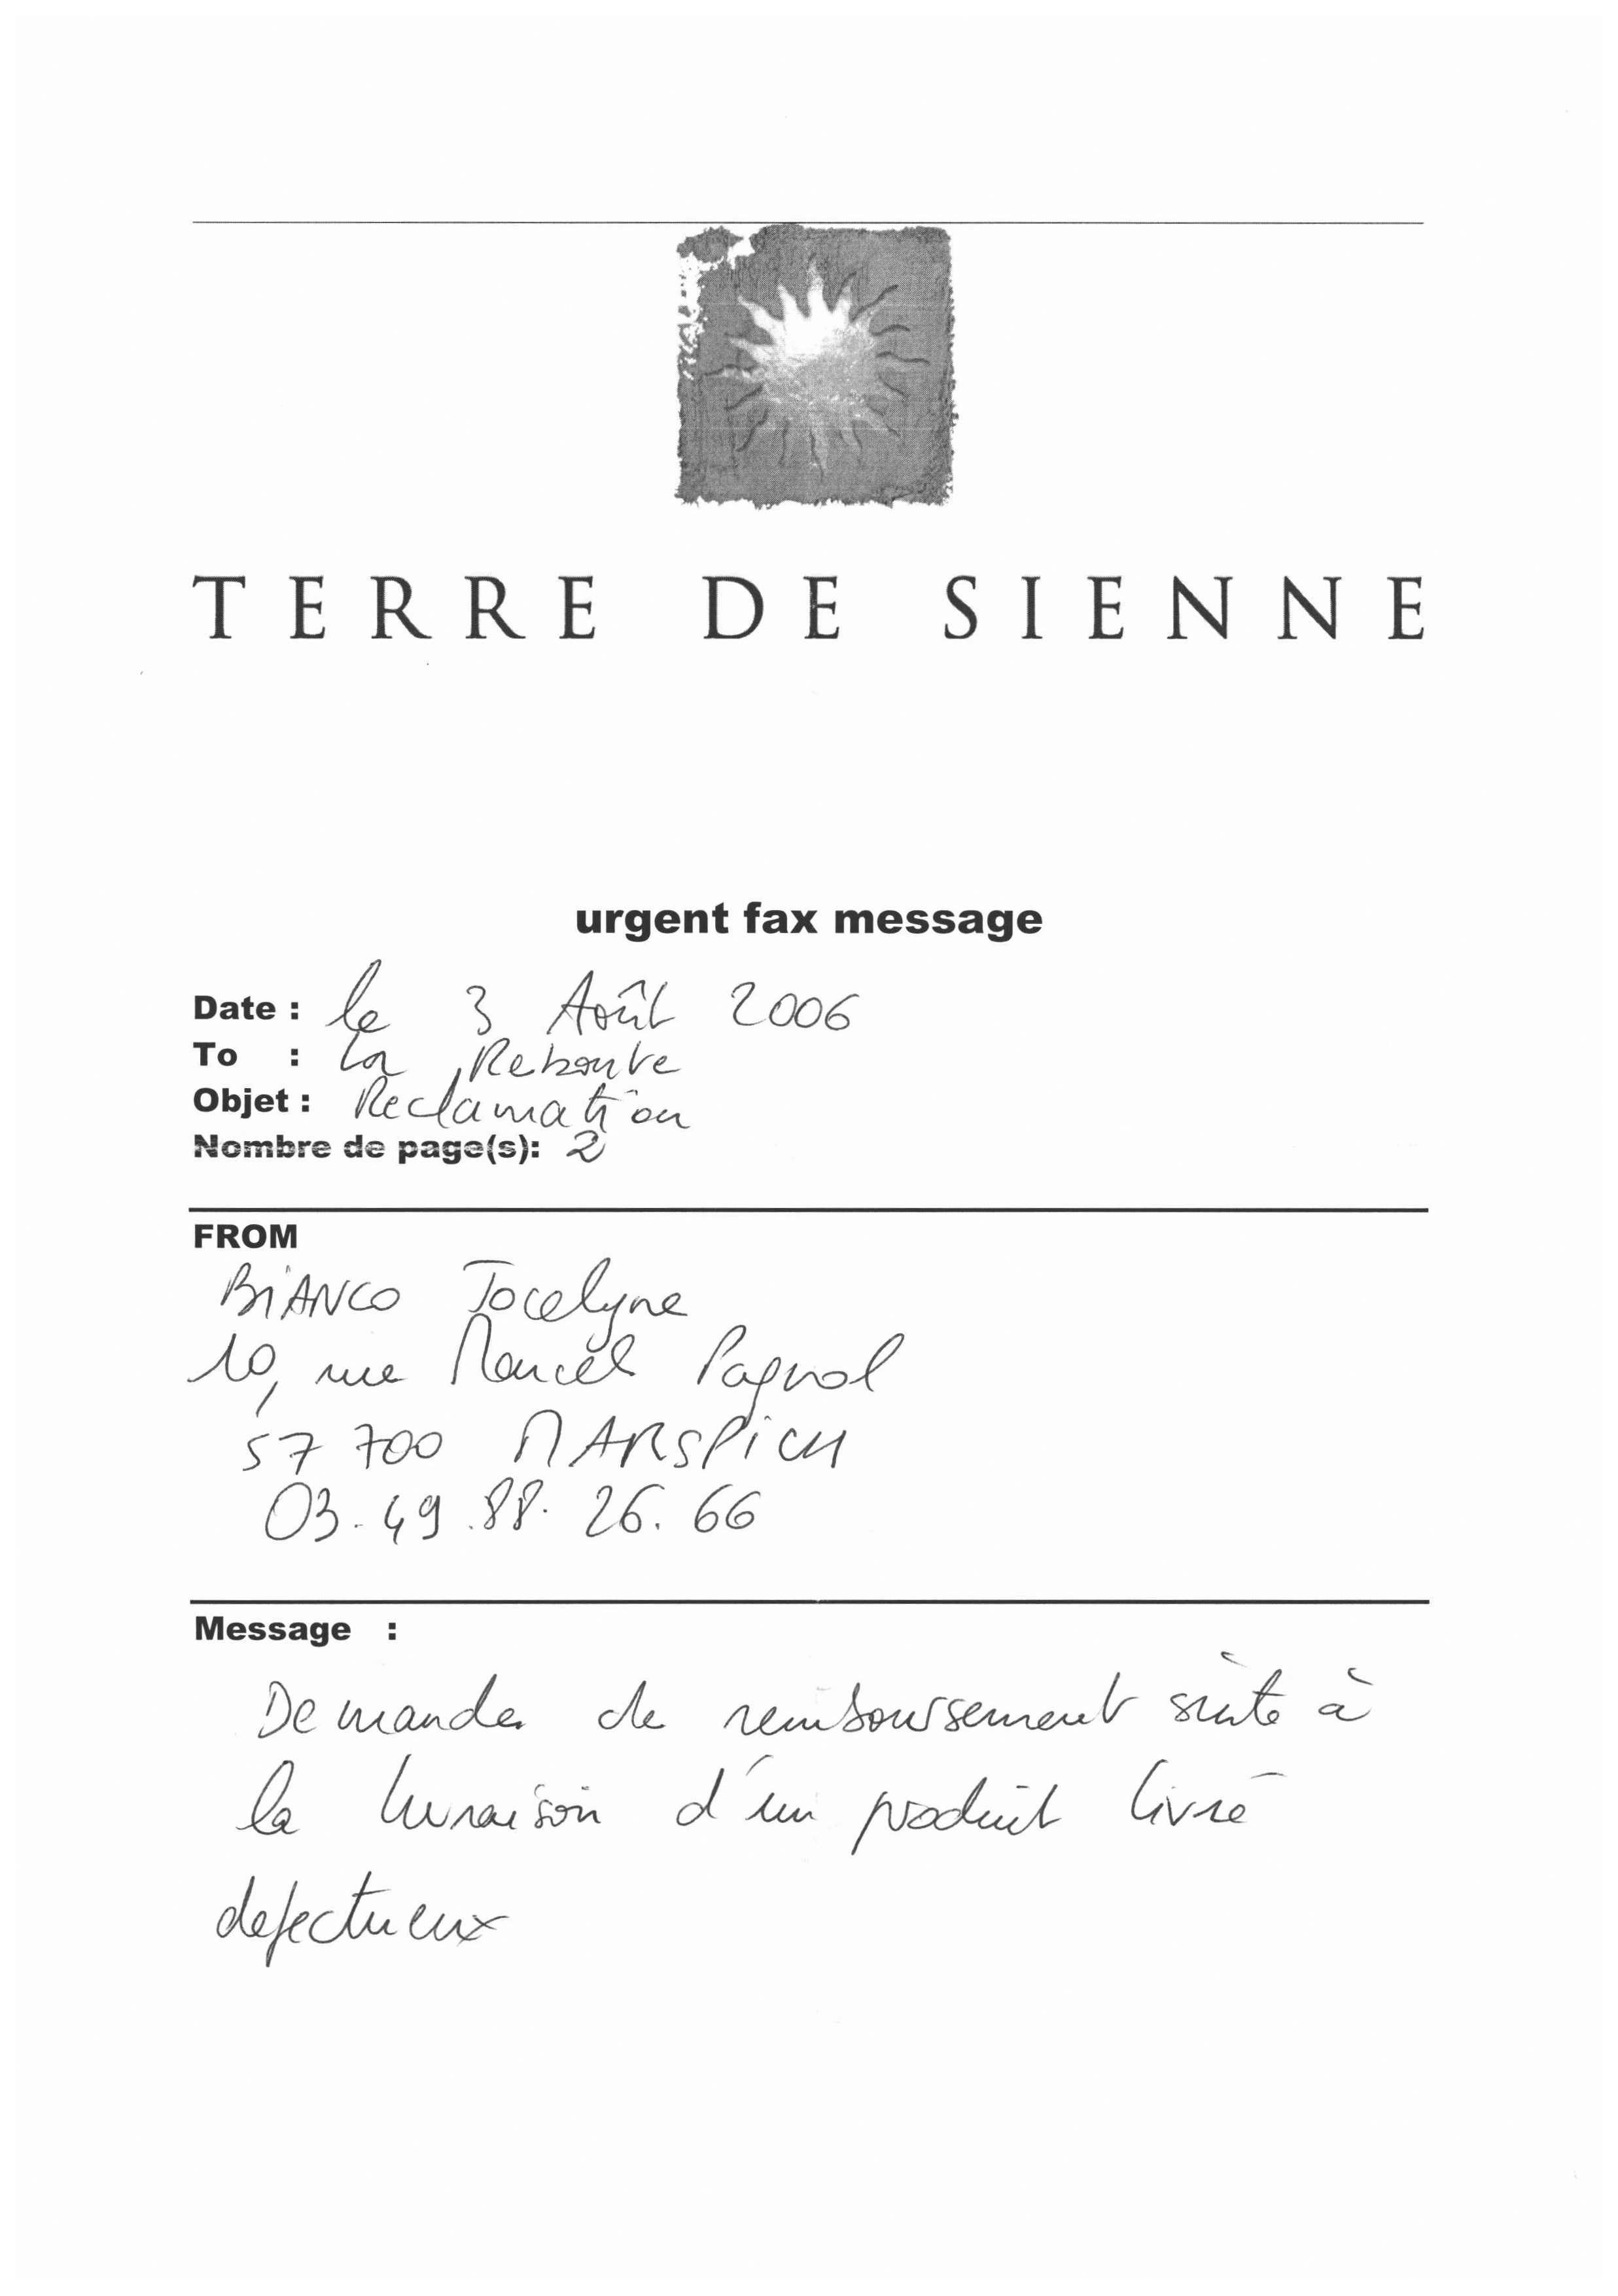 TERRE DE SIENNE
urgent fax message
Date : le 3 Août 2006
To : La Redoute
Objet : Reclamation
Nombre de page(s): 2
FROM
BIANCO Jocelyne
10, rue Marcel Pagnol
57 700 MARSPICH
03.49.88.26.66
Message :
Demande de remboursement suite à
la livraison d'un produit livré
defectueux